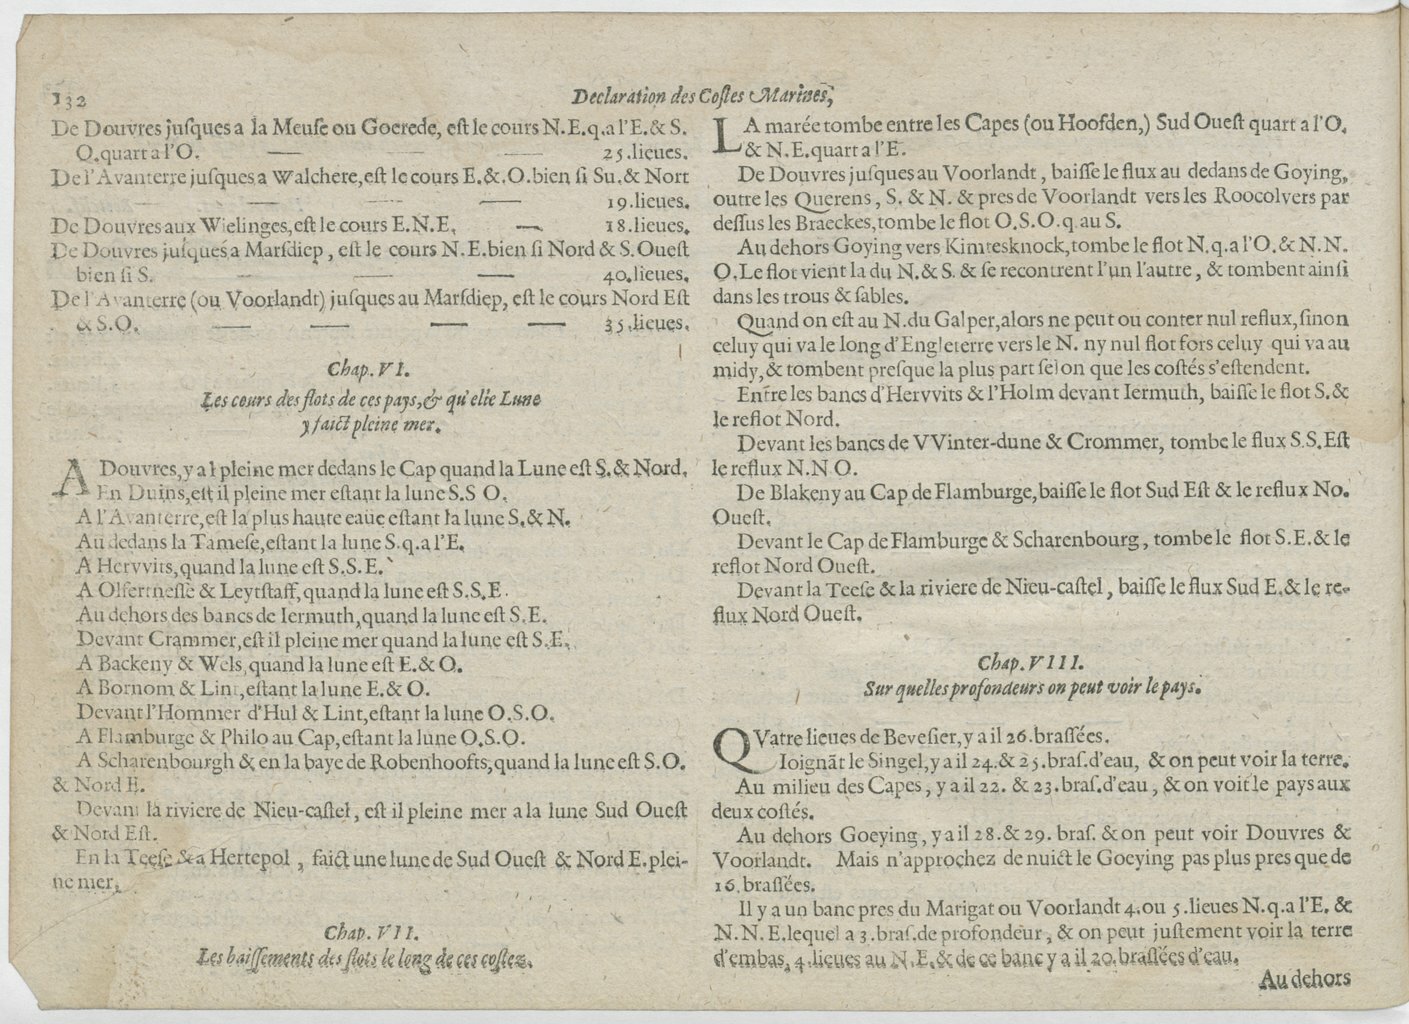 132
Declaration des Costes Marines,
De Douvres jusques a la Meuse ou Goerede, est le cours N.E.q.a l'E.& S.
O.quart a l'O. 25.lieues.
De l'Avanterre jusques a Walchere,est le cours E.&.O.bien si Su.& Nort
19.lieues.
De Douvres aux Wielinges,est le cours E.N.E. 18.lieues.
De Douvres jusques a Marsdiep, est le cours N.E.bien si Nord & S.Ouest
bien si S. 40.lieues.
De l'Avanterre (ou Voorlandt) jusques au Marsdiep, est le cours Nord Est
& S.O. 35.lieues.
Chap. VI.
Les cours des flots de ces pays,& qu'elle Lune
y faict pleine mer.
A Douvres,y a l pleine mer dedans le Cap quand la Lune est S.& Nord.
En Duins,est il pleine mer estant la lune S.S O.
A l'Avanterre,est la plus haute eaue estant la lune S.& N.
Au dedans la Tamese,estant la lune S.q.a l'E.
A Hervvits,quand la lune est S.S.E.
A Olfertnesse & Leytstaff,quand la lune est S.S.E.
Au dehors des bancs de Iermuth,quand la lune est S.E.
Devant Crammer,est il pleine mer quand la lune est S.E.
A Backeny & Wels,quand la lune est E.& O.
A Bornom & Lint,estant la lune E.& O.
Devant l'Hommer d'Hul & Lint,estant la lune O.S.O.
A Flamburge & Philo au Cap,estant la lune O.S.O.
A Scharenbourgh & en la baye de Robenhoofts,quand la lune est S.O.
& Nord E.
Devant la riviere de Nieu-castel, est il pleine mer a la lune Sud Ouest
& Nord Est.
En la Teese & a Hertepol, faict une lune de Sud Ouest & Nord E.plei-
ne mer.
Chap. VII.
Les baissements des flots le long de ces costez.
LA marée tombe entre les Capes (ou Hoofden,) Sud Ouest quart a l'O.
& N.E.quart a l'E.
De Douvres jusques au Voorlandt, baisse le flux au dedans de Goying,
outre les Querens, S. & N. & pres de Voorlandt vers les Roocolvers par
dessus les Braeckes,tombe le flot O.S.O.q.au S.
Au dehors Goying vers Kimtesknock,tombe le flot N.q.a l'O.& N.N.
O.Le flot vient la du N.& S. & se recontrent l'un l'autre, & tombent ainsi
dans les trous & sables.
Quand on est au N.du Galper,alors ne peut ou conter nul reflux,sinon
celuy qui va le long d'Engleterre vers le N. ny nul flot fors celuy qui va au
midy,& tombent presque la plus part selon que les costés s'estendent.
Entre les bancs d'Hervvits & l'Holm devant Iermuth, baisse le flot S.&
le reflot Nord.
Devant les bancs de VVinter-dune & Crommer, tombe le flux S.S.Est
le reflux N.N O.
De Blakeny au Cap de Flamburge,baisse le flot Sud Est & le reflux No.
Ouest.
Devant le Cap de Flamburge & Scharenbourg, tombe le flot S.E.& le
reflot Nord Ouest.
Devant la Teese & la riviere de Nieu-castel, baisse le flux Sud E.& le re-
flux Nord Ouest.
Chap. VIII.
Sur quelles profondeurs on peut voir le pays.
QVatre lieues de Bevesier,y a il 26.brassées.
Ioignãt le Singel,y a il 24.& 25.bras.d'eau, & on peut voir la terre.
Au milieu des Capes, y a il 22. & 23.bras.d'eau, & on voit le pays aux
deux costés.
Au dehors Goeying, y a il 28.& 29. bras. & on peut voir Douvres &
Voorlandt. Mais n'approchez de nuict le Goeying pas plus pres que de
16.brassées.
Il y a un banc pres du Marigat ou Voorlandt 4.ou 5.lieues N.q.a l'E. &
N.N.E.lequel a 3.bras.de profondeur, & on peut justement voir la terre
d'embas, 4.lieues au N.E.& de ce banc y a il 20.brassées d'eau.
Au dehors